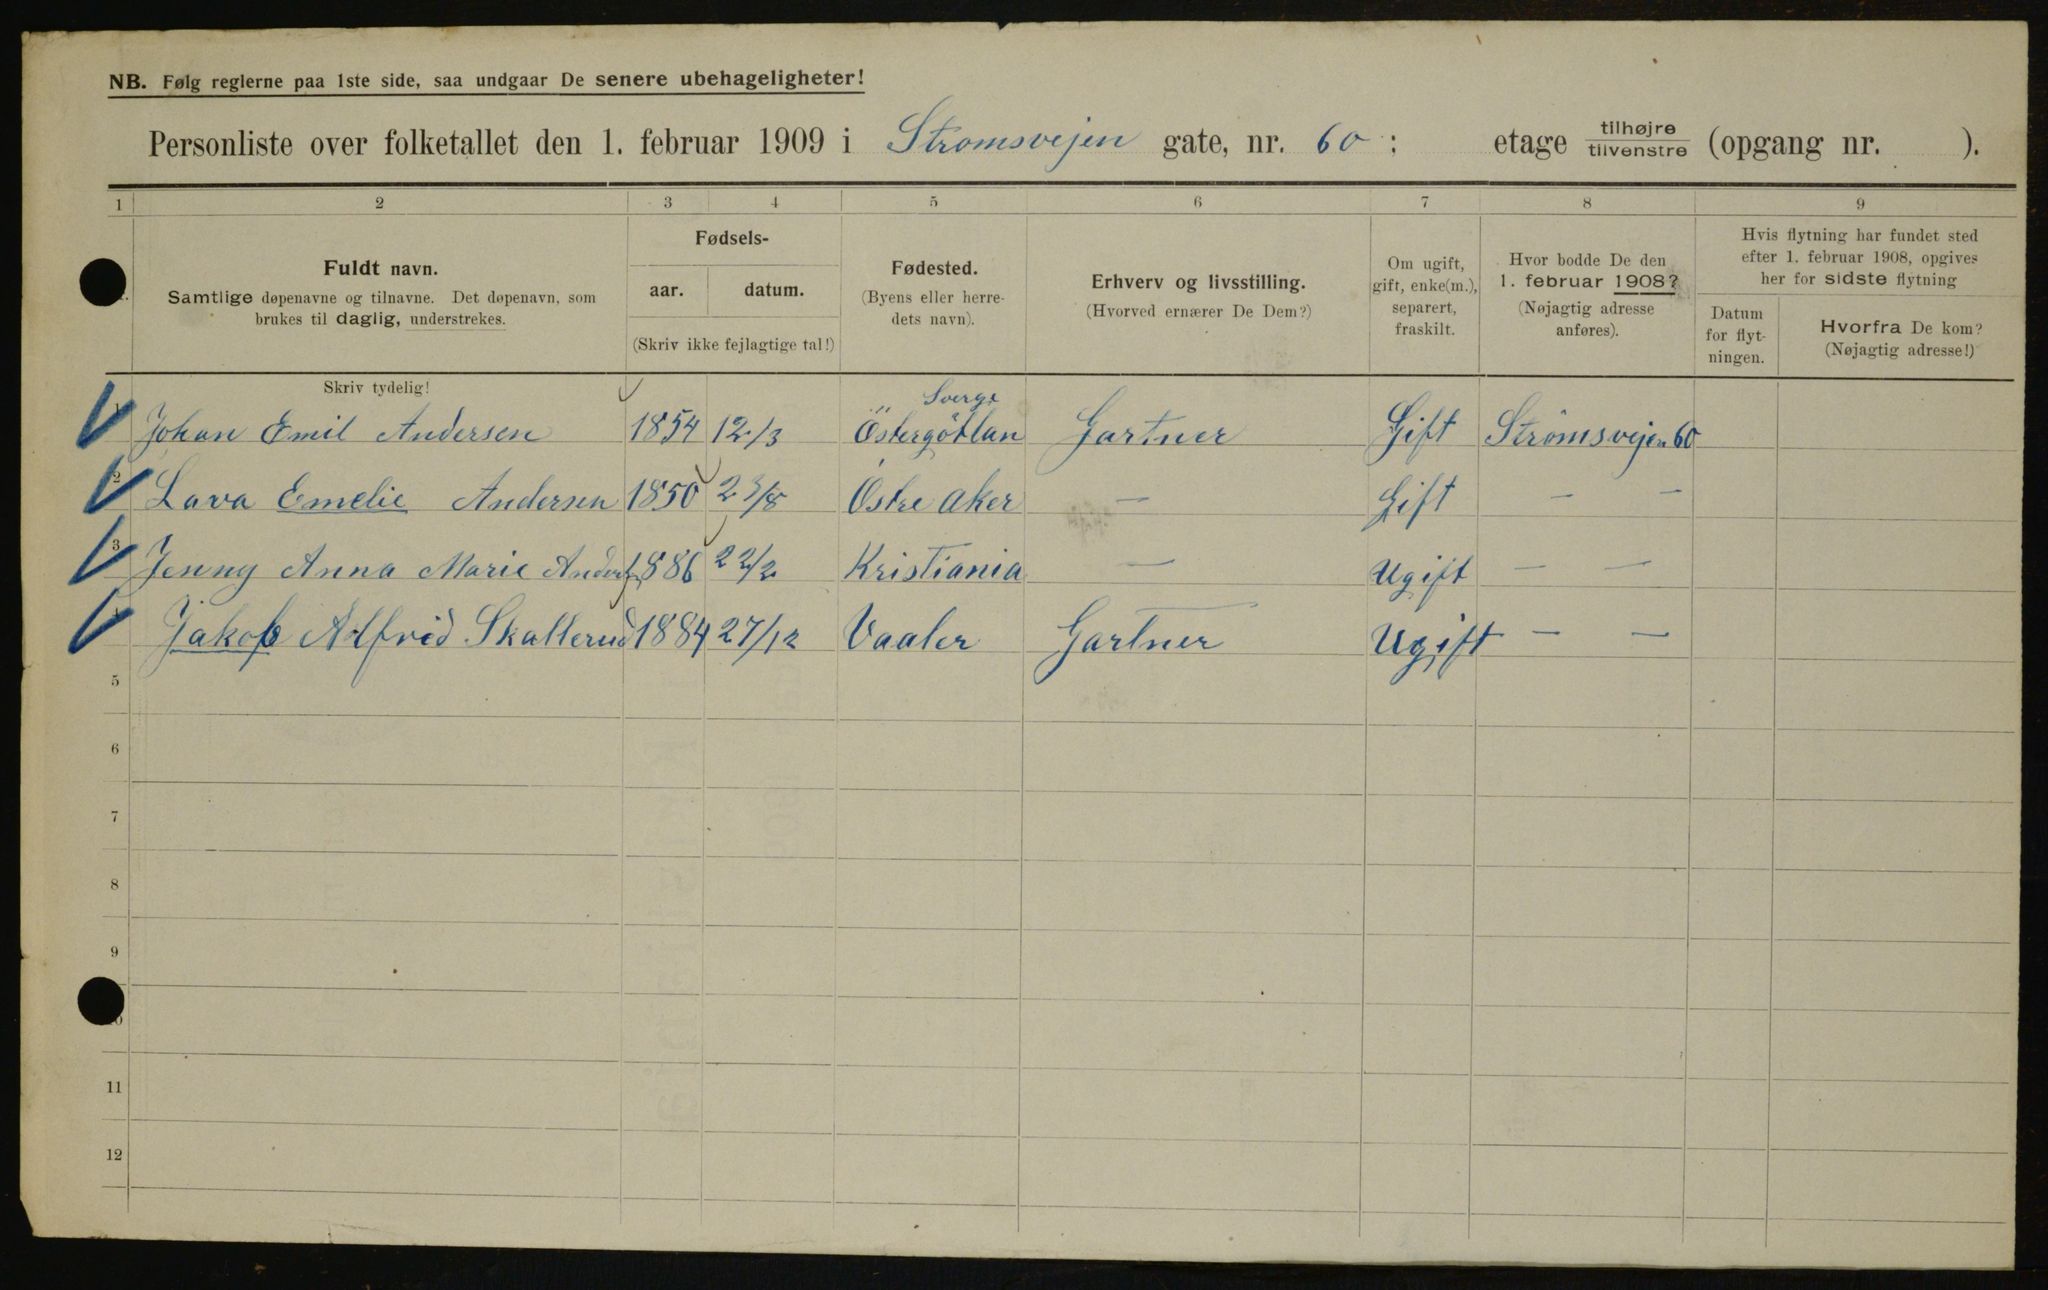 NB. Følg reglerne paa 1ste side, saa undgaar De senere ubehageligheter!
Personliste over folketallet den 1. februar 1909 i Strømsvejen gate, nr. 60 ; etage tilhøjre/tilvenstre (opgang nr. ).
1 2 3 4 5 6 7 8 9
Fuldt navn.
Samtlige døpenavne og tilnavne. Det døpenavn, som
brukes til daglig, understrekes.
Skriv tydelig!
Fødsels-
aar. datum.
(Skriv ikke fejlagtige tal!)
Fødested.
(Byens eller herre-
dets navn).
Erhverv og livsstilling.
(Hvorved ernærer De Dem?)
Om ugift,
gift, enke(m.),
separert,
fraskilt.
Hvor bodde De den
1. februar 1908?
(Nøjagtig adresse
anføres).
Hvis flytning har fundet sted
efter 1. februar 1908, opgives
her for sidste flytning
Datum
for flyt-
ningen.
Hvorfra De kom?
(Nøjagtig adresse!)
Sverge
1 Johan Emil Andersen 1854 12/3 Östergötlan Gartner Gift Strömsvejen 60
2 Lava Emelie Andersen 1850 23/8 Östre Aker — Gift — —
3 Jenny Anna Marie Anders 1886 22/2 Kristiania — Ugift — —
4 Jakob Alfrid Skallerud 1884 27/12 Vaaler Gartner Ugift — —
5
6
7
8
9
10
11
12